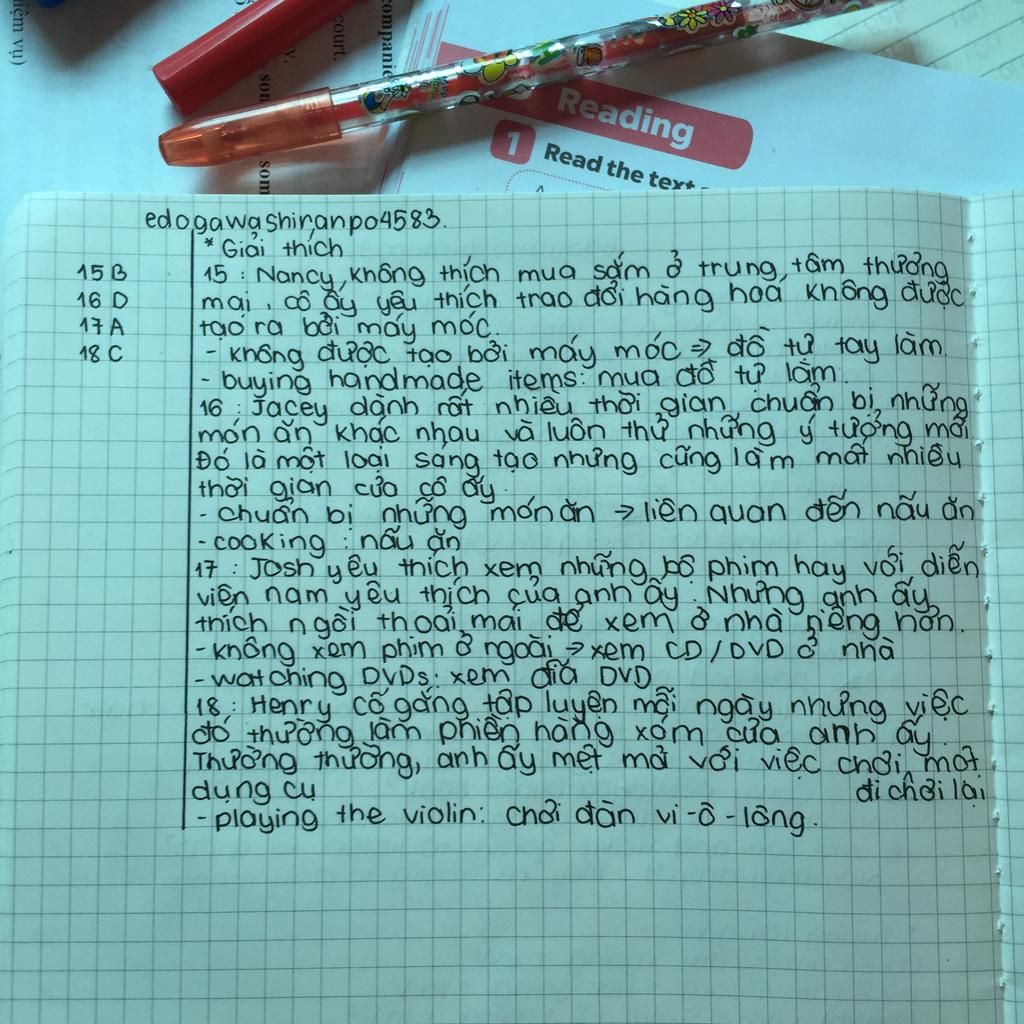 iệm vụ)
companie
court.
y.
son
som
Reading
1 Read the text
edogawashiranpo4583.
* Giải thích
15 B
16 D
17 A
18 C
15 : Nancy không thích mua sắm ở trung tâm thương
mại, cô ấy yêu thích trao đổi hàng hoá không được
tạo ra bởi máy móc.
- không được tạo bởi máy móc ⇒ đồ tự tay làm
- buying handmade items: mua đồ tự làm.
16 : Jacey dành rất nhiều thời gian chuẩn bị những
món ăn khác nhau và luôn thử những ý tưởng mới
Đó là một loại sáng tạo nhưng cũng làm mất nhiều
thời gian của cô ấy.
- chuẩn bị những món ăn → liên quan đến nấu ăn
- cooking : nấu ăn
17 : Josh yêu thích xem những bộ phim hay với diễn
viên nam yêu thích của anh ấy. Nhưng anh ấy
thích ngồi thoải mái để xem ở nhà riêng hơn.
- không xem phim ở ngoài → xem CD/DVD ở nhà
- watching DVDs: xem đĩa DVD
18 : Henry cố gắng tập luyện mỗi ngày nhưng việc
đó thường làm phiền hàng xóm của anh ấy.
Thường thường, anh ấy mệt mỏi với việc chơi một
dụng cụ đi chơi lại
- playing the violin: chơi đàn vi-ô-lông.